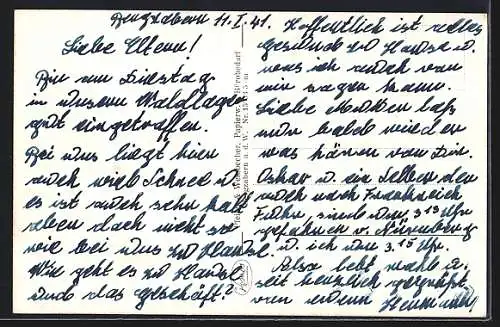 Bergzabern 11.I.41.
Liebe Eltern!
Bin am Dinstag
in unserm Waldlager
gut eingetroffen.
Bei uns liegt hier
auch viel Schnee u.
es ist auch sehr kalt
aber doch nicht so
wie bei uns zu Hause.
Wie geht es zu Hause
und das geschäft?
Hoffentlich ist alles
gesund zu Hause u.
was ich auch von
mir sagen kann.
Liebe Mutter laß
mir bald wieder
was hören von Dir.
Oskar u. ein Selber der
auch nach Frankreich
Fuhr, sind um 3 13 Uhr
gefahren v. Nürnberg
u. ich um 3.15 Uhr.
Also lebt wohl u.
seit herzlich gegrüßt
von euerm Hermann